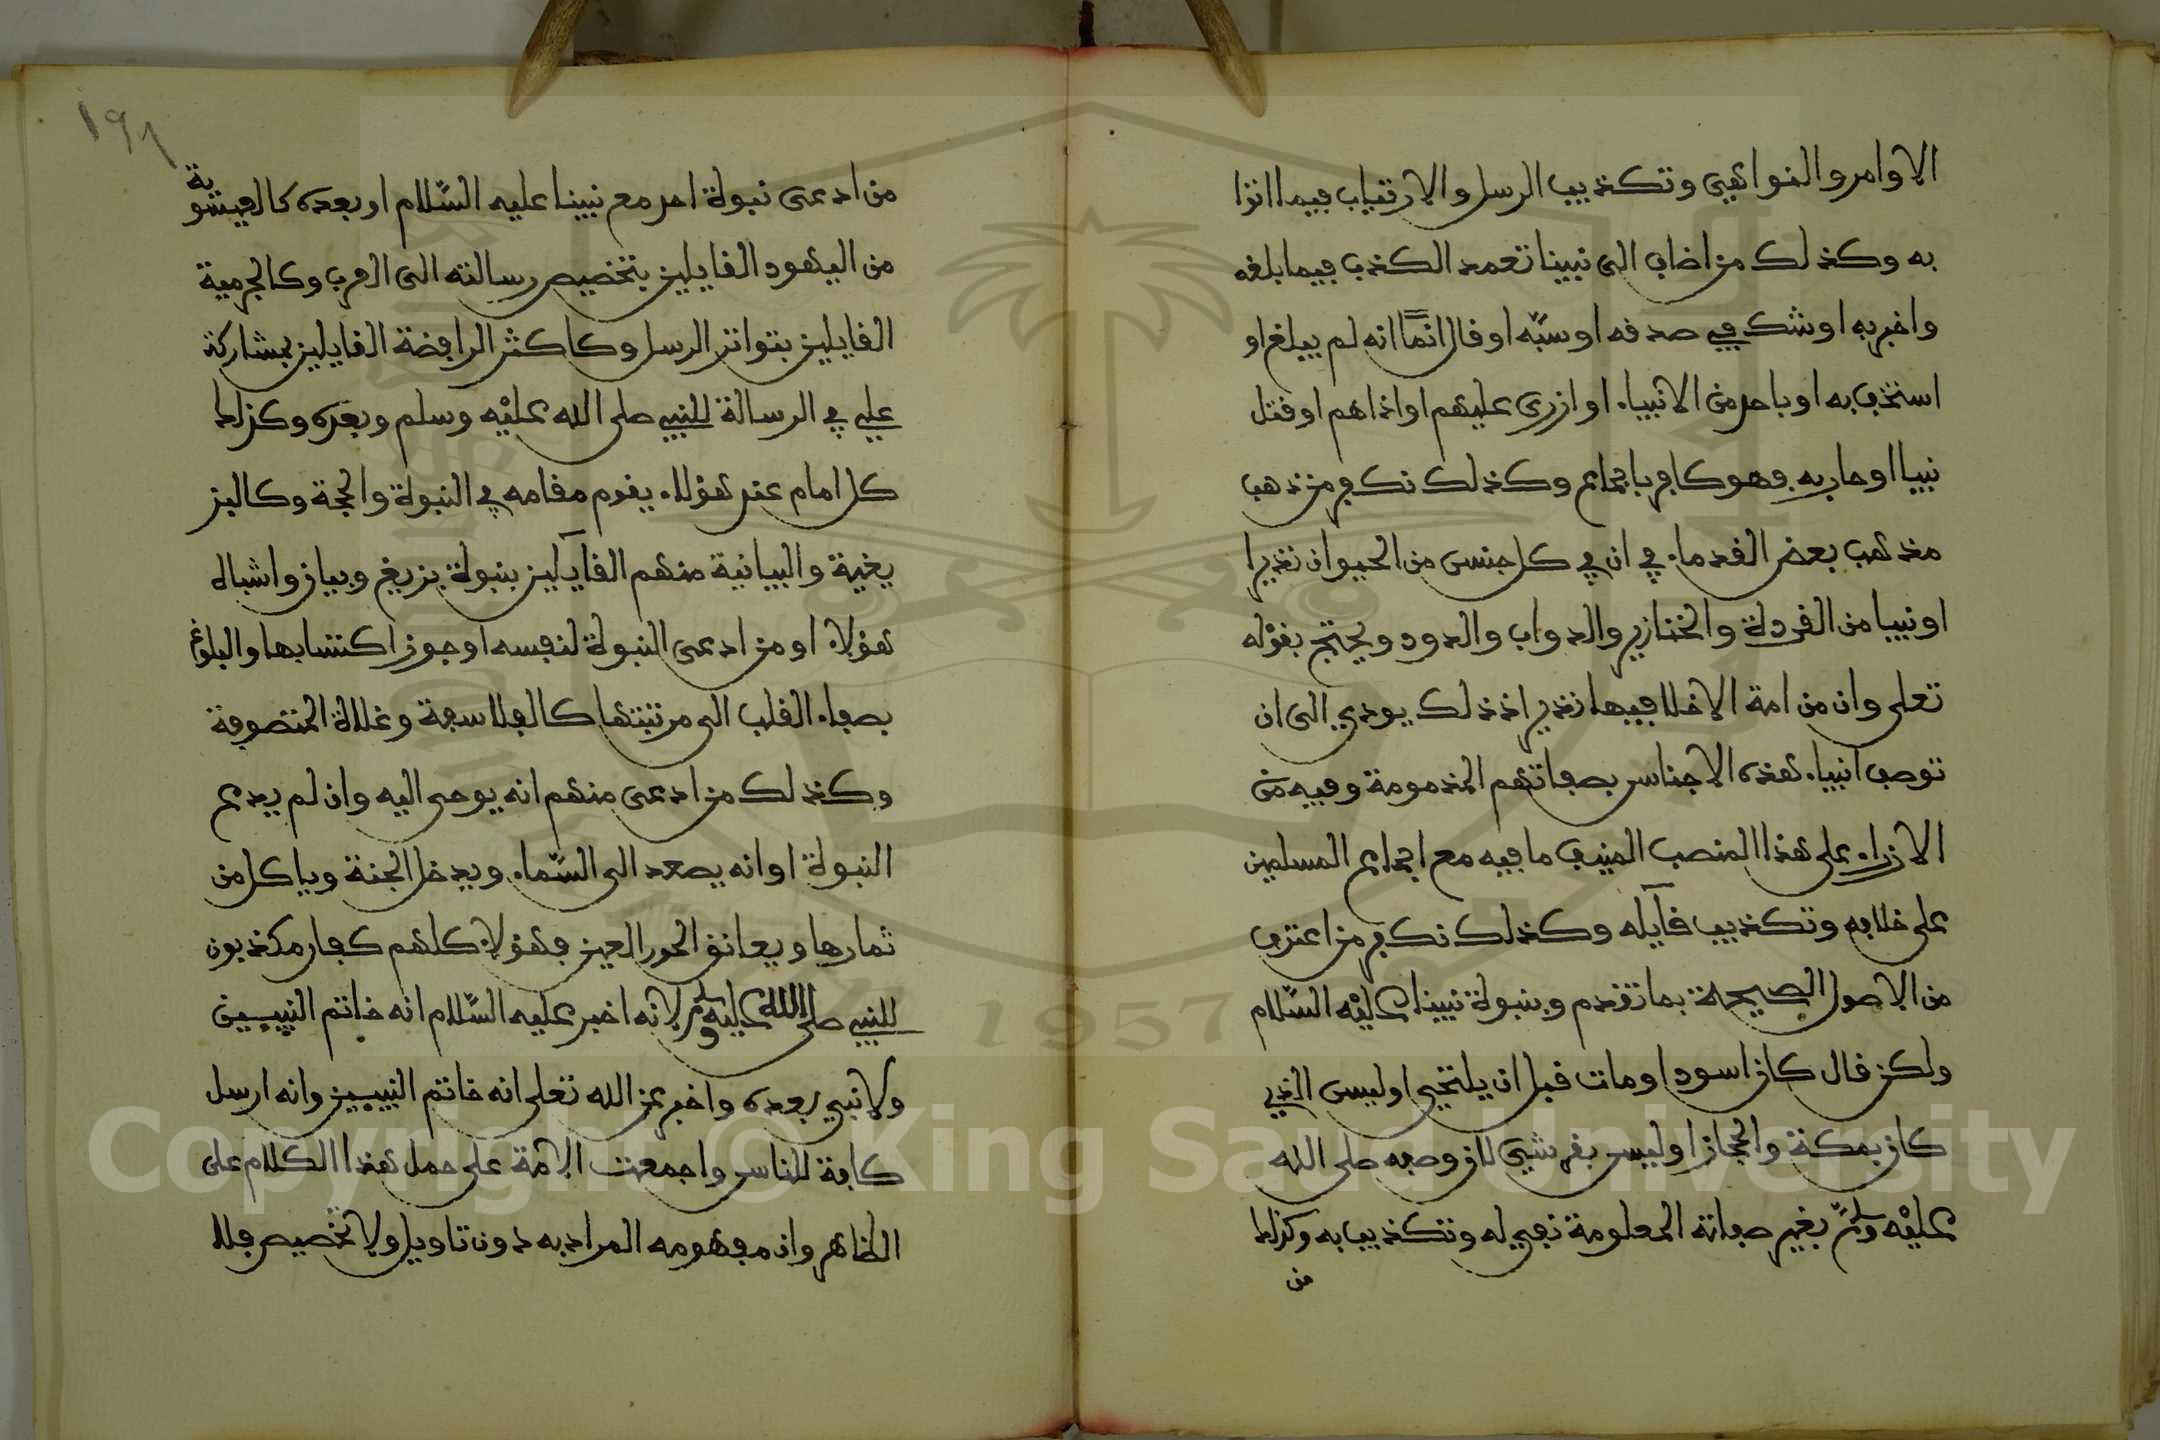 الاوامر والنواهي وتكذيب الرسل والارتياب فيما اتوا
به وكذلك من اضاف الى نبينا تعمد الكذب فيما بلغه
واخبر به او شك في صدقه او سبه او قال انه لم يبلغ او
استخف به او باحد من الانبياء او ازرى عليهم او اذاهم او قتل
نبيا او حاربه فهو كافر باجماع وكذلك نكفر من ذهب
مذهب بعض القدماء في ان في كل جنس من الحيوان نذيرا
او نبيا من القردة والخنازير والدواب والدود ويحتج بقوله
تعلى وان من امة الا خلا فيها نذير اذ ذلك يودي الى ان
توصف انبياء هذه الاجناس بصفاتهم المذمومة وفيه من
الازراء على هذا المنصب المنيف ما فيه مع اجماع المسلمين
على خلافه وتكذيب قآيله وكذلك نكفر من اعترف
من الاصول الصحيحة بما تقدم وبنبوة نبينا عليه السلام
ولكن قال كان اسود او مات قبل ان يلتحي او ليس الذي
كان بمكة والحجاز او ليس بقرشي لان وصفه صلى الله
عليه وسلم بغير صفاته المعلومة نفي له وتكذيب به وكذلك
من
١٩٨
من ادعى نبوة احد مع نبينا عليه السلام او بعده كالعيسوية
من اليهود القايلين بتخصيص رسالته الى العرب وكالجرمية
القايلين بتواتر الرسل وكاكثر الرافضة القايلين بمشاركة
علي في الرسالة للنبي صلى الله عليه وسلم وبعده وكذلك
كل امام عند هؤلاء يقوم مقامه في النبوة والحجة وكالبز
يغية والبيانية منهم القآيلين بنبوة بزيغ وبيان واشباه
هؤلاء او من ادعى النبوة لنفسه او جوز اكتسابها والبلوغ
بصفاء القلب الى مرتبتها كالفلاسفة وغلاة المتصوفة
وكذلك من ادعى منهم انه يوحى اليه وان لم يدع
النبوة او انه يصعد الى السماء ويدخل الجنة وياكل من
ثمارها ويعانق الحور العين فهؤلاء كلهم كفار مكذبون
للنبي صلى الله عليه وسلم لانه اخبر عليه السلام انه خاتم النبيين
ولا نبي بعده واخبر عن الله تعلى انه خاتم النبيين وانه ارسل
كافة للناس واجمعت الامة على حمل هذا الكلام على
الظاهر وان مفهومه المراد به دون تاويل ولا تخصيص فلا
Copyright © King Saud University
1957